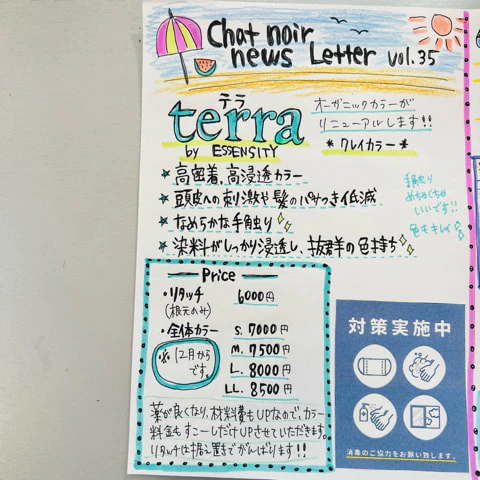 Chat noir
news Letter vol.35
テラ
terra
by ESSENSITY
オーガニックカラーが
リニューアルします!!
*クレイカラー*
★高密着、高浸透カラー
★頭皮への刺激や髪のパサつき低減
★なめらかな手触り
★染料がしっかり浸透し、抜群の色持ち
手触り
めちゃくちゃ
いいです!!
色もキレイ
Price
・リタッチ 6000円
(根元のみ)
・全体カラー S. 7000円
※12月から
です。
M. 7500円
L. 8000円
LL. 8500円
薬が良くなり、材料費もUPなので、カラー
料金もすこーしだけUPさせていただきます。
リタッチは据え置きでがんばります!!
対策実施中
消毒のご協力をお願い致します。